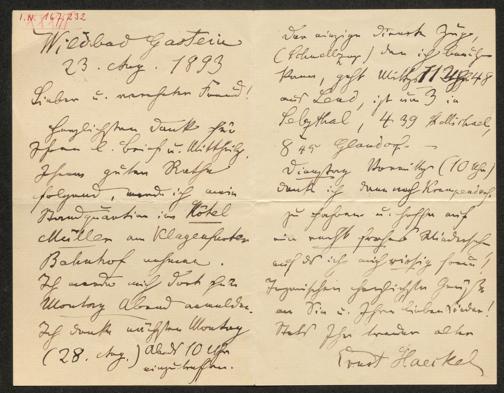 I.N. 167.232
Wildbad Gastein
23. Aug. 1893
Lieber u. verehrter Freund!
Herzlichsten Dank für
Ihren l. Brief u. Mitthlg.
Ihrem guten Rathe
folgend, werde ich mein
Standquartier im Hotel
Müller am Klagenfurter
Bahnhof nehmen.
Ich werde mich dort für
Montag Abend anmelden.
Ich denke nächsten Montag
(28. Aug.) Abds 10 Uhr
einzutreffen.
Der einzige directe Zug,
(Schnellzug) den ich
kann, geht Mittgs 11 Uhr 48
aus Lend, ist um 3 in
Selzthal, 4.39
8 Glandorf. —
Dienstag Vormittg (10 Uhr)
denke ich dann nach Krumpendorf
zu fahren u. hoffe auf
ein recht frohes Wiedersehn
auf das ich mich riesig freue!
Inzwischen herzlichste Grüße
an Sie u. Ihre lieben Kinder!
Stets Ihr treuer alter
Ernst Haeckel